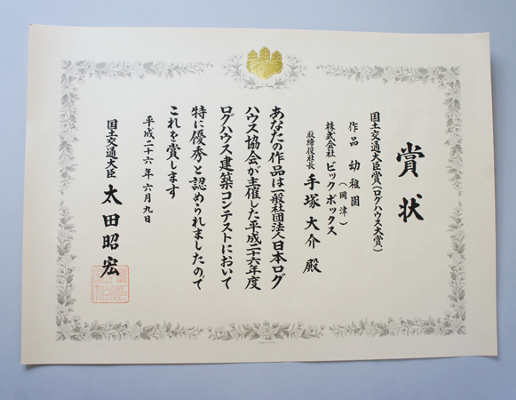 賞状
国土交通大臣賞(ログハウス大賞)
作品 幼稚園
(岡津)
株式会社 ビックボックス
取締役社長 手塚大介 殿
あなたの作品は一般社団法人日本ログ
ハウス協会が主催した平成二十六年度
ログハウス建築コンテストにおいて
特に優秀と認められましたので
これを賞します
平成二十六年六月九日
国土交通大臣 太田昭宏